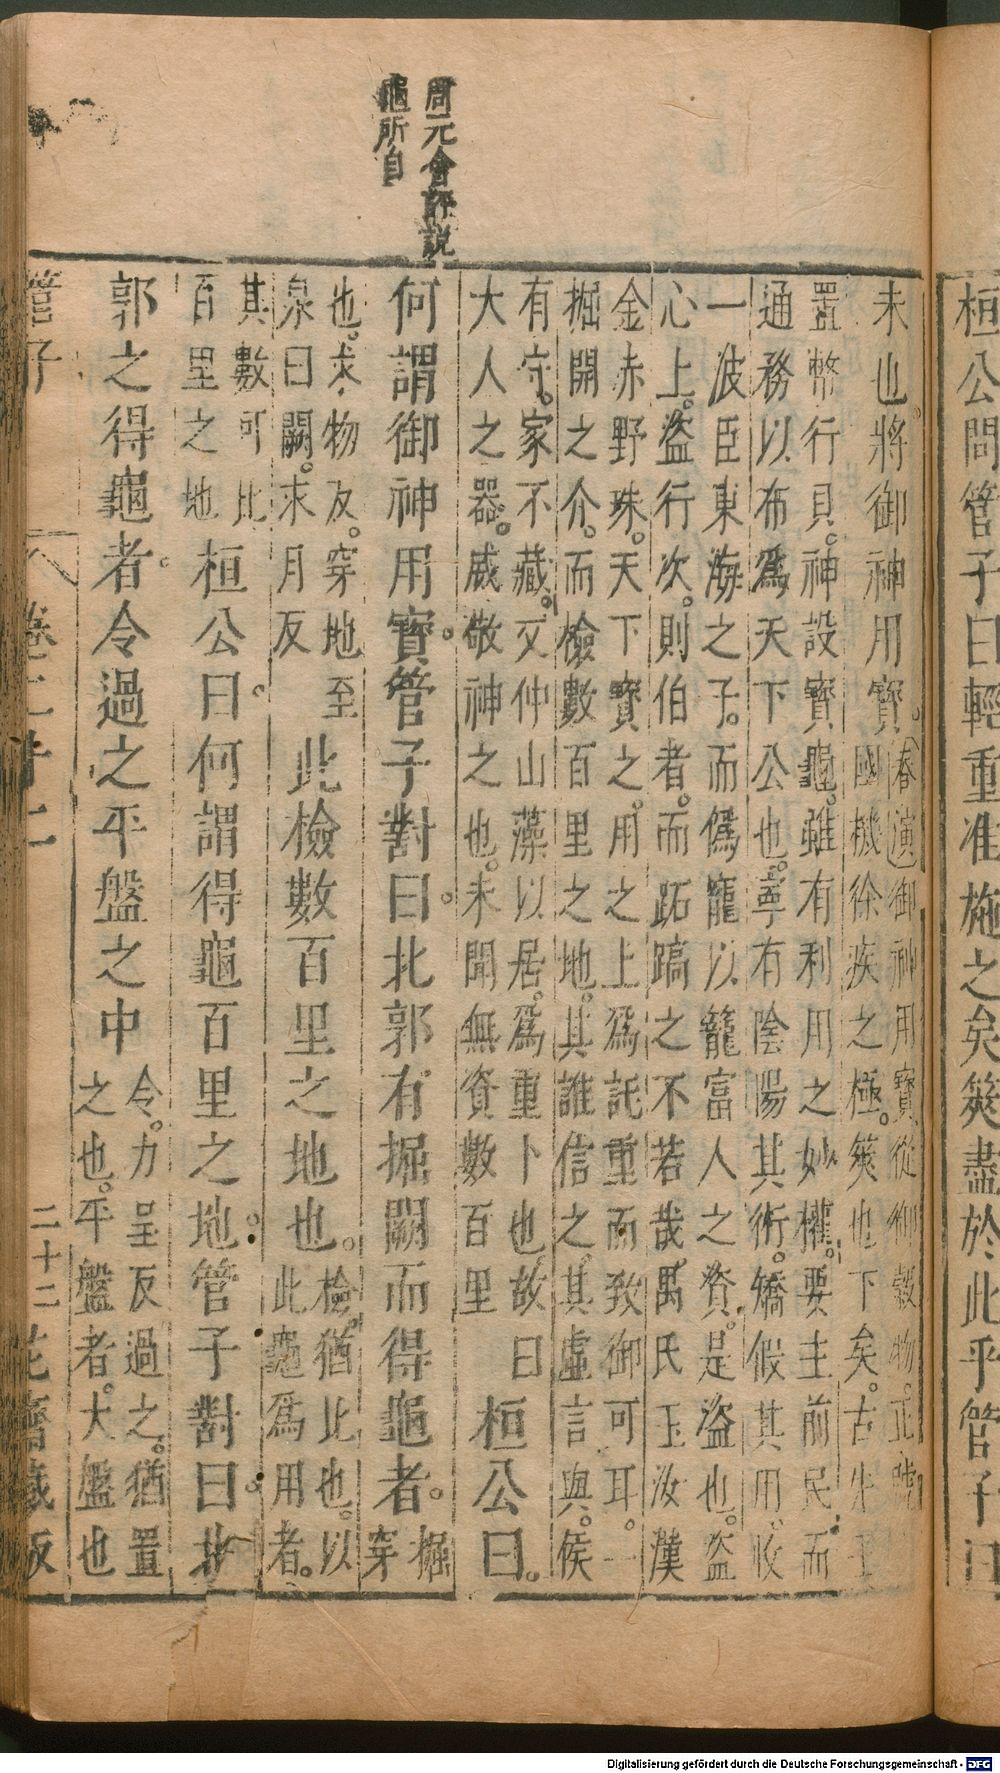 桓公問管子曰輕重准施之矣筴盡於此乎管子曰
周元會評說
龜所自
未也。將御神用寶。
春演御神用寶從御穀物。正號
國機徐疾之極。筴也下矣。古先王
置幣行貝。神設寶龜。雖有利用之妙權。要主前民。而
通務以布為天下公也。尊有陰陽其術。矯假其用。收
一波臣東海之子。而為寵以籠富人之資。是盜也。盜
心上。盜行次。則伯者。而跖蹻之不若哉。禺氏玉汝漢
金赤野珠。天下寶之。用之上為託重而致御可耳。一
掘開之介。而檢數百里之地。其誰信之。其虛言與。侯
有守。家不藏。文仲山藻以居。為重卜也故曰
大人之器。威敬神之也。未聞無資數百里
桓公曰。
何謂御神用寶。管子對曰。北郭有掘闕而得龜者。
掘
穿
也。求物反。穿地至
泉曰闕。求月反
此檢數百里之地也。
檢。猶此也。以
此龜為用者。
其數可比
百里之地
桓公曰。何謂得龜百里之地。管子對曰。北
郭之得龜者。令過之平盤之中
令。力呈反過之。猶置
之也。平盤者。大盤也
管子 卷二十二 二十二 花齋藏板
Digitalisierung gefördert durch die Deutsche Forschungsgemeinschaft - DFG